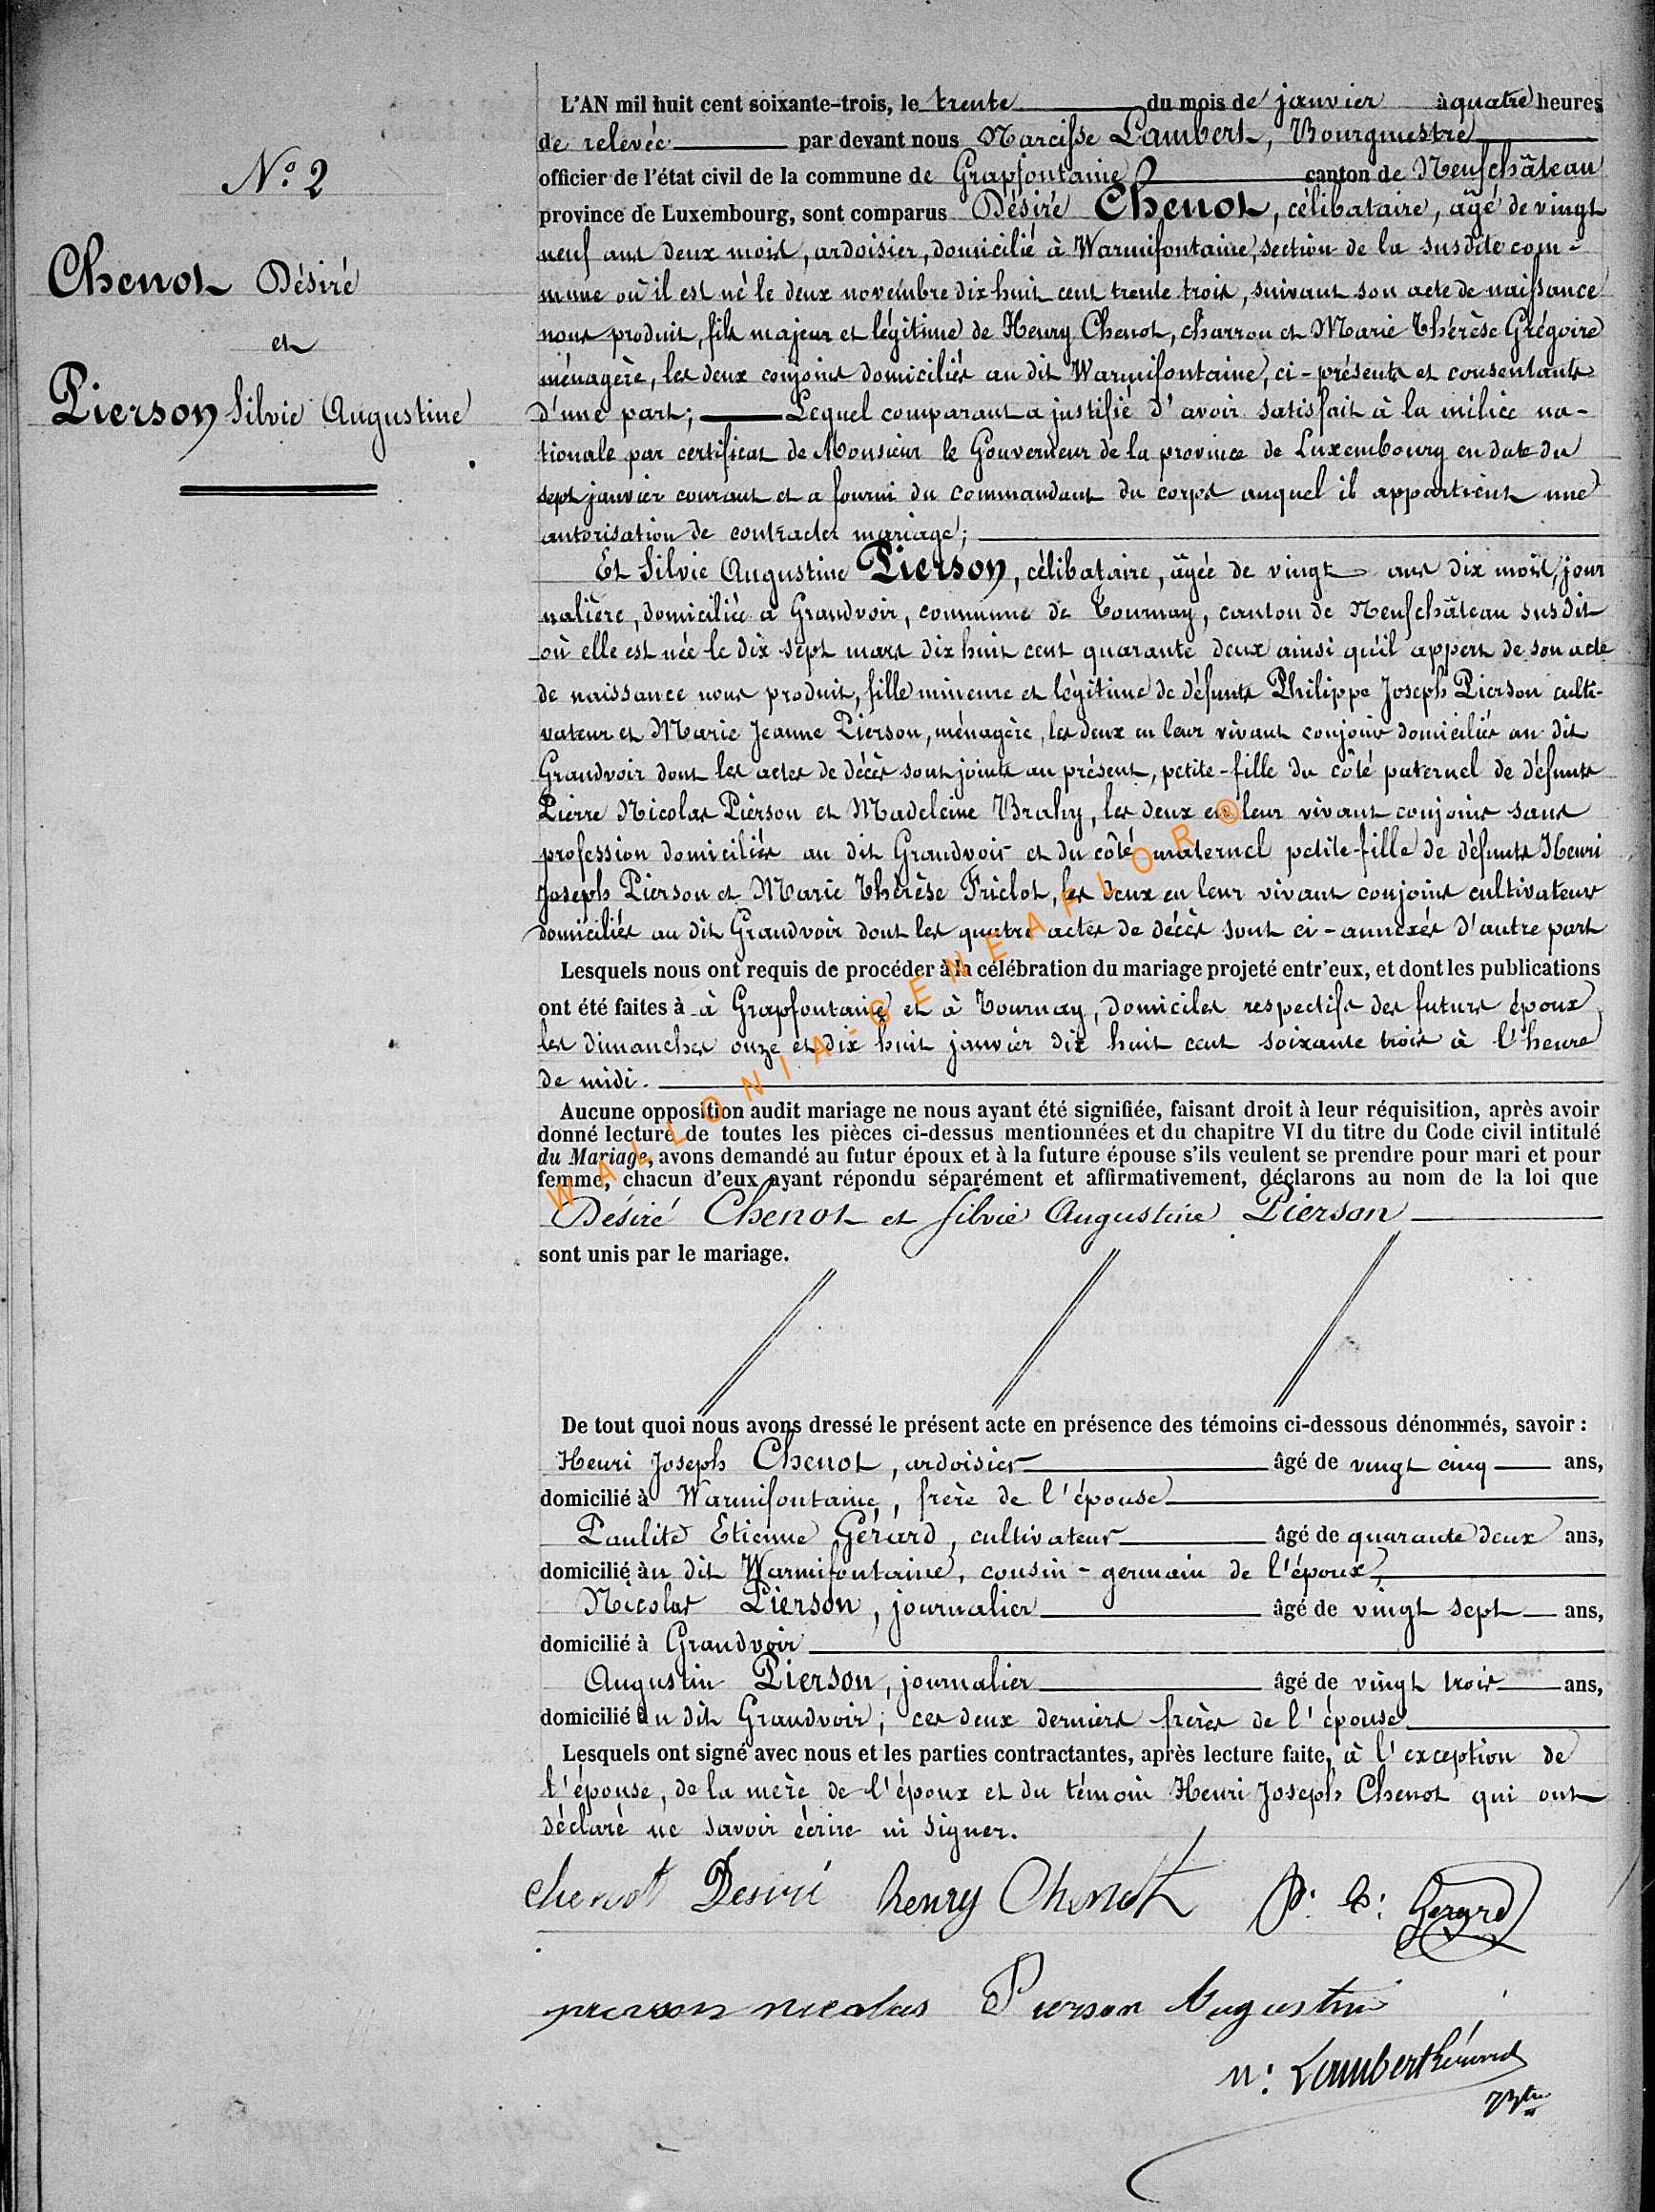 N.° 2
Chenot Désiré
et
Pierson Silvie Augustine
L'AN mil huit cent soixante-trois, le trente du mois de janvier à quatre heures
de relevée par devant nous Narcisse Lambert, Bourgmestre
officier de l'état civil de la commune de Grapfontaine canton de Neufchâteau
province de Luxembourg, sont comparus Désiré Chenot, célibataire, âgé de vingt
neuf ans deux mois, ardoisier, domicilié à Warmifontaine, section de la susdite com-
mune où il est né le deux novembre dix-huit cent trente trois, suivant son acte de naissance
nous produit, fils majeur et légitime de Henry Chenot, charron et Marie Thérèse Grégoire
ménagère, les deux conjoins domiciliés au dit Warmifontaine, ci-présents et consentants
d'une part; Lequel comparant a justifié d'avoir satisfait à la milice na-
tionale par certificat de Monsieur le Gouverneur de la province de Luxembourg en date du
sept janvier courant et a fourni du commandant du corps auquel il appartient une
autorisation de contracter mariage;
Et Silvie Augustine Pierson, célibataire, âgée de vingt ans dix mois, jour
nalière, domiciliée à Grandvoir, commune de Tournay, canton de Neufchâteau susdit
où elle est née le dix sept mars dix huit cent quarante deux ainsi qu'il appert de son acte
de naissance nous produit, fille mineure et légitime de défunts Philippe Joseph Pierson culti-
vateur et Marie Jeanne Pierson, ménagère, les deux en leur vivant conjoins domiciliés au dit
Grandvoir dont les actes de décès sont joints au présent, petite-fille du côté paternel de défunts
Pierre Nicolas Pièrson et Madeleine Brahy, les deux en leur vivant conjoins sans
profession domiciliés au dit Grandvoir et du côté maternel petite-fille de défunts Henri
Joseph Pierson et Marie Thérèse Friclot, les deux en leur vivant conjoins cultivateurs
domiciliés au dit Grandvoir dont les quatre actes de décès sont ci-annexés d'autre part
Lesquels nous ont requis de procéder à la célébration du mariage projeté entr'eux, et dont les publications
ont été faites à à Grapfontaine et à Tournay, domiciles respectifs des futurs époux
les dimanches onze et dix huit janvier dix huit cent soixante trois à l'heure
de midi.
Aucune opposition audit mariage ne nous ayant été signifiée, faisant droit à leur réquisition, après avoir
donné lecture de toutes les pièces ci-dessus mentionnées et du chapitre VI du titre du Code civil intitulé
du Mariage, avons demandé au futur époux et à la future épouse s'ils veulent se prendre pour mari et pour
femme, chacun d'eux ayant répondu séparément et affirmativement, déclarons au nom de la loi que
Désiré Chenot et Silvie Augustine Pierson
sont unis par le mariage.
De tout quoi nous avons dressé le présent acte en présence des témoins ci-dessous dénommés, savoir :
Henri Joseph Chenot, ardoisier âgé de vingt cinq ans,
domicilié à Warmifontaine, frère de l'épouse
Paulite Etienne Gérard, cultivateur âgé de quarante deux ans,
domicilié au dit Warmifontaine, cousin-germain de l'époux,
Nicolas Pierson, journalier âgé de vingt sept ans,
domicilié à Grandvoir
Augustin Pierson, journalier âgé de vingt trois ans,
domicilié au dit Grandvoir; ces deux derniers frères de l'épouse
Lesquels ont signé avec nous et les parties contractantes, après lecture faite, à l'exception de
l'épouse, de la mère de l'époux et du témoin Henri Joseph Chenot qui ont
déclaré ne savoir écrire ni signer.
chenot Desiré henry Chenot P. E: Gerard
pierson nicolas Pierson Augustin
N: Lambert Gérard
WALLONIA-GENEAFLOR®